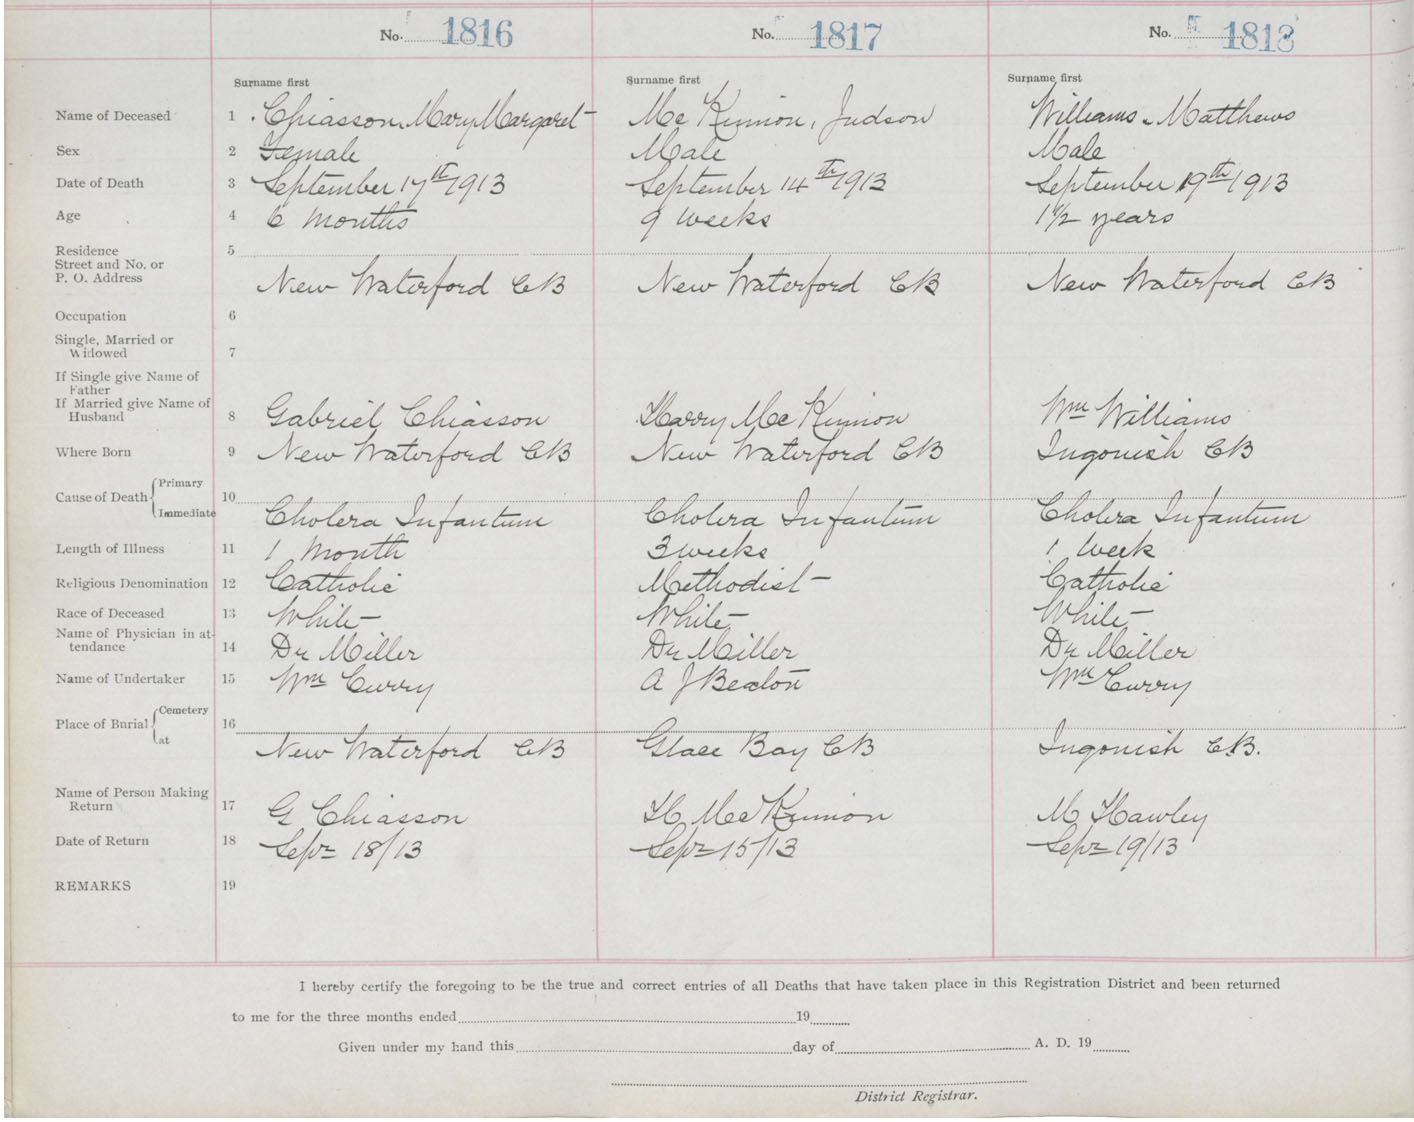 No. 1816 No. 1817 No. 1818
Surname first Surname first Surname first
Name of Deceased 1 Chiasson, Mary Margaret Mc Kinnon, Judson Williams, Matthews
Sex 2 Female Male Male
Date of Death 3 September 17th 1913 September 14th 1913 September 19th 1913
Age 4 6 months 9 weeks 1 1/2 years
Residence 5
Street and No. or
P. O. Address New Waterford CB New Waterford CB New Waterford CB
Occupation 6
Single, Married or
Widowed 7
If Single give Name of
Father
If Married give Name of
Husband 8 Gabriel Chiasson Harry Mc Kinnon Wm Williams
Where Born 9 New Waterford CB New Waterford CB Ingonish CB
Primary
Cause of Death 10
Immediate Cholera Infantum Cholera Infantum Cholera Infantum
Length of Illness 11 1 Month 3 weeks 1 Week
Religious Denomination 12 Catholic Methodist Catholic
Race of Deceased 13 White White White
Name of Physician in at-
tendance 14 Dr Miller Dr Miller Dr Miller
Name of Undertaker 15 Wm Curry A J Beaton Wm Curry
Cemetery
Place of Burial 16
at New Waterford CB Glace Bay CB Ingonish C.B.
Name of Person Making
Return 17 G Chiasson H Mc Kinnon M Hawley
Date of Return 18 Sept 18/13 Sept 15/13 Sept 19/13
REMARKS 19
I hereby certify the foregoing to be the true and correct entries of all Deaths that have taken place in this Registration District and been returned
to me for the three months ended 19
Given under my hand this day of A. D. 19
District Registrar.